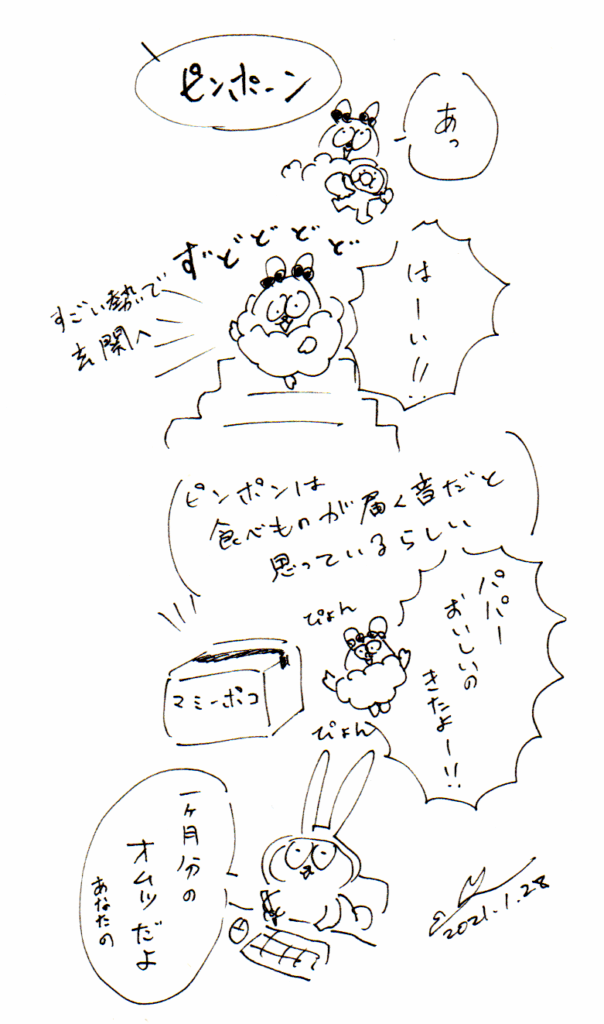 ピンポーン
あっ
ずどどどど
すごい勢いで
玄関へ
はーい!!
ピンポンは
食べものが届く音だと
思っているらしい
ぴょん
パパー
おいしいの
きたよー!!
マミーポコ
ぴょん
一ヶ月分の
オムツだよ
あなたの
2021.1.28